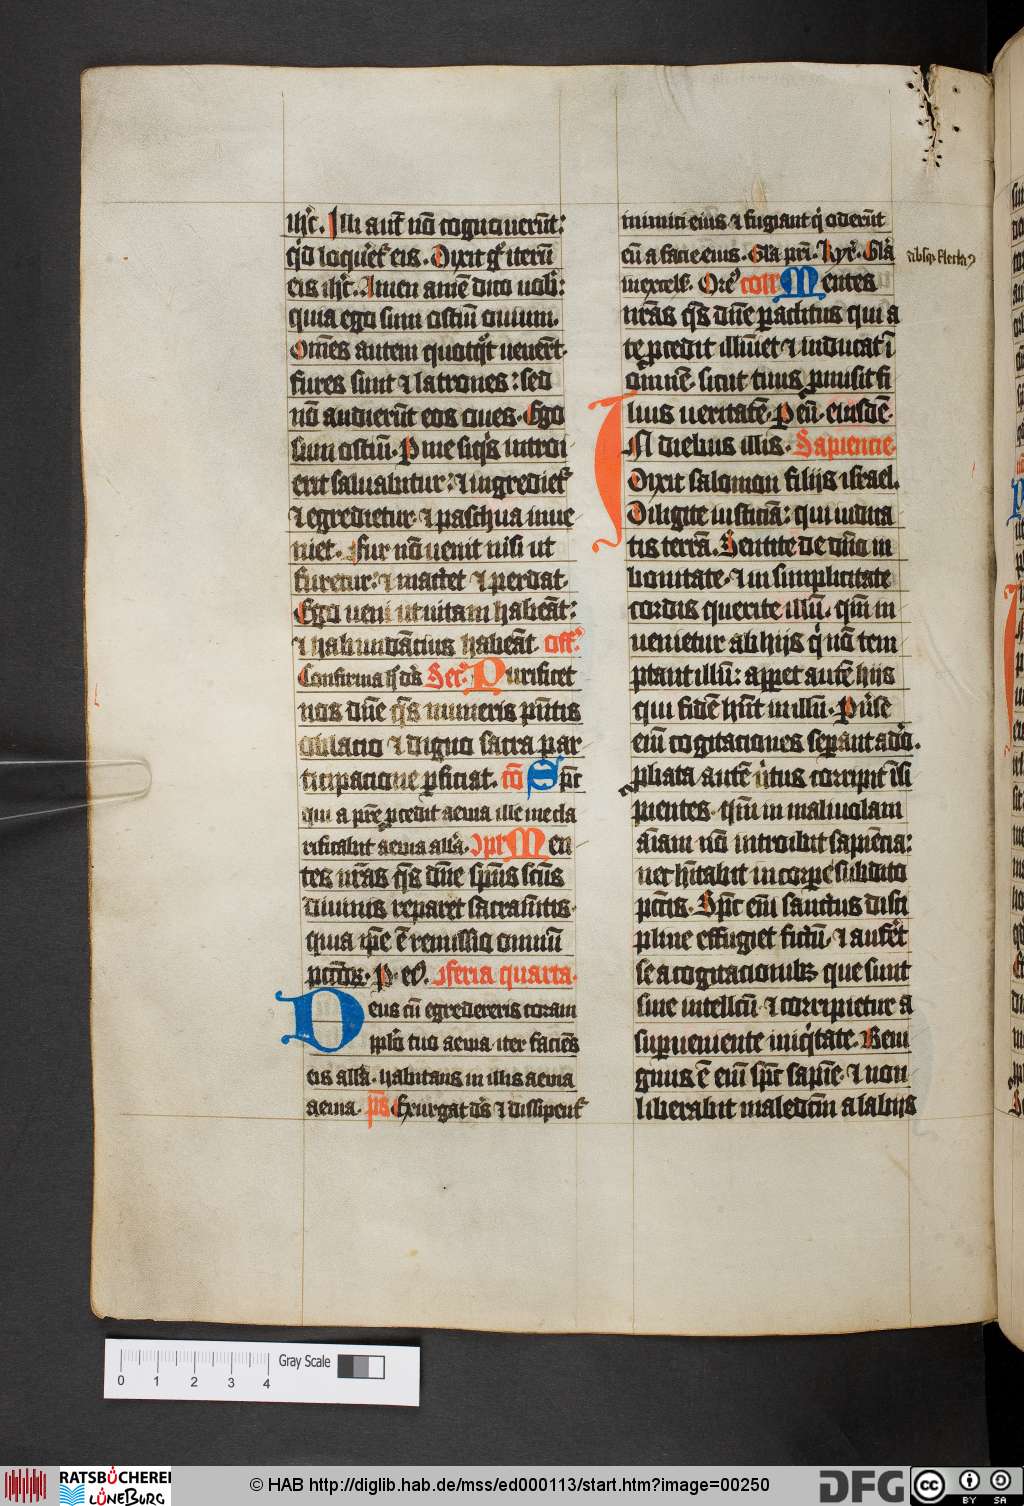 ih'c. Illi aut̄ nō cognouerūt:
q'd loqueret' eis. Dixit g' iterū
eis ih'c. Amen amē dico uob':
quia ego sum ostiū ouium.
Om̄es autem quotq't venerūt
fures sunt ⁊ latrones: sed
nō audierūt eos oues. Ego
sum ostiū. Per me siq's introi
erit saluabitur: ⁊ ingrediet'
⁊ egredietur ⁊ paschua inue
niet. Fur nō uenit nisi ut
furetur: ⁊ mactet ⁊ perdat.
Ego ueni ut uitam habeāt:
⁊ habundācius habeāt. Off.
Confirma h' ds̄ Secr. Purificet
nos dn̄e q̄s muneris pn̄tis
oblacio ⁊ digno sacra par
ticipacione ꝑficiat. cō Spc
qui a pr̄e ꝓcedit aeuia ille me cla
rificabit aeuia all'a. Ipl Men
tes nr̄as q̄s dn̄e sp̄us sc̄us
diuinis reparet sacram̄tis.
quia ip̄e ē remissio omniū
pctōꝝ. P. eꝰ. Feria quarta.
Deus cū egredereris coram
ppl'o tuo aeuia iter faciēs
eis all'a. habitans in illis aeuia
aeuia. ps Exurgat ds̄ ⁊ dissipent'
inimici eius ⁊ fugiant q' oderūt
eū a facie eius. Gl'a pr̄i. Kyr'. Gl'a
in excels'. Orem' coll Mentes
nr̄as q̄s dn̄e paclitus qui a
te ꝓcedit illuīet ⁊ inducat ī
omnē. sicut tuus ꝓmisit fi
lius ueritatē. P eū. eiusdē.
In diebus illis. Sapiencie.
Dixit salomon filijs israel.
Diligite iusticiā: qui iudica
tis terrā. Sentite de dn̄o in
bonitate. ⁊ in simplicitate
cordis querite illū. qm̄ in
uenietur ab hijs q' nō tem
ptant illū: apparet autē hijs
qui fidē hn̄t in illū. Peruse
em̄ cogitaciones separant a deo.
pbata autē u'tus corripit īsi
pientes. qm̄ in maliuolam
aīam nō introibit sapiēcia:
nec hītabit in corpe subdito
pctīs. Spc em̄ sanctus disci
pline effugiet fictū. ⁊ aufert
se a cogitacionibꝫ que sunt
sine intellcū ⁊ corripietur a
superueniente iniq'tate. Beni
gnus ē em̄ spc sapiē. ⁊ non
liberabit maledcm̄ a labijs
Gray Scale
0 1 2 3 4
RATSBÜCHEREI
LÜNEBURG
© HAB http://diglib.hab.de/mss/ed000113/start.htm?image=00250
DFG
cc
BY SA